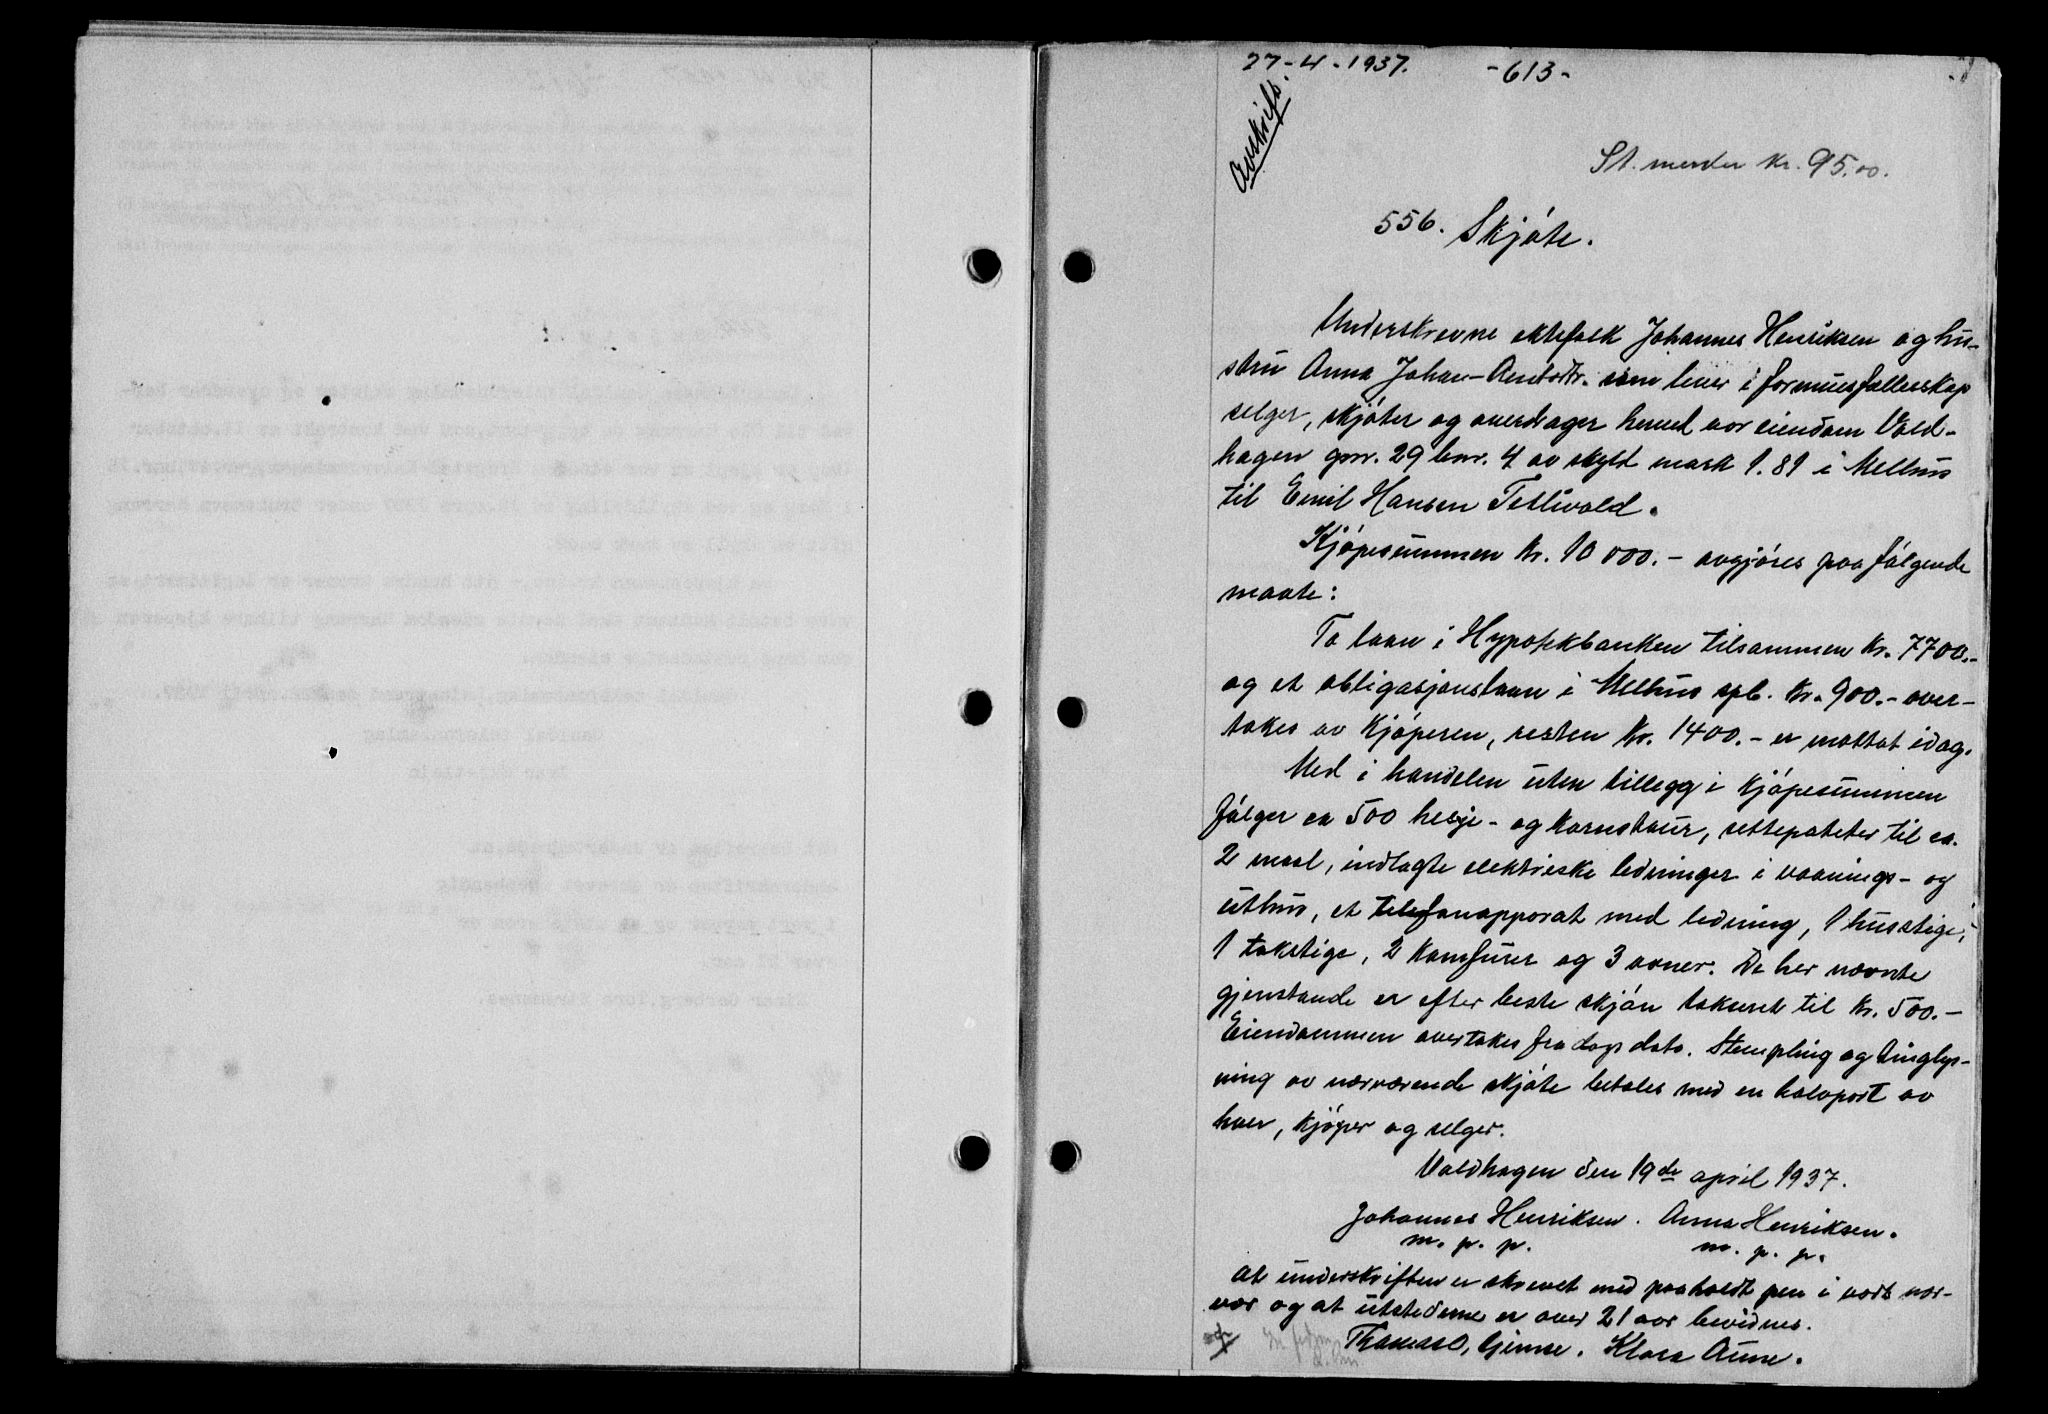 27-4-1937. -613-
Avskrift.
St. merker kr. 95.00.
556. Skjøte.
Underskrevne ektefolk Johannes Henriksen og hu-
stru Anna Johan-Arntsdtr. som lever i formuesfællesskap
selger, skjøter og overdrager herved vor eiendom Vold-
hagen gnr. 29 bnr. 4 av skyld mark 1.81 i Melhus
til Emil Hansen Tetlivold.
Kjøpesummen kr. 10 000.- avgjøres paa følgende
maate:
To laan i Hypotekbanken tilsammen kr. 7700.-
og et obligasjonslaan i Melhus spb. kr. 900.- over-
takes av kjøperen, resten kr. 1400.- er mottat idag.
Med i handelen uten tillegg i kjøpesummen
følger ca 500 hesje- og kornstaur, settepoteter til ca.
2 maal, indlagte elektriske ledninger i vaanings- og
uthus, et telefonapparat med ledning, 1 husstige,
1 takstige, 2 komfurer og 3 ovner. De her nævnte
gjenstande er efter beste skjøn taksert til kr. 500.-
Eiendommen overtakes fra dags dato. Stempling og tinglys-
ning av nærværende skjøte betales med en halvpart av
hver, kjøper og selger.
Voldhagen den 19de april 1937.
Johannes Henriksen. Anna Henriksen.
m. p. p. m. p. p.
At underskriften er skrevet med paaholdt pen i vort nær-
vær og at utstederne er over 21 aar bevidnes.
Thomas O. Gimse. Klara Aune.